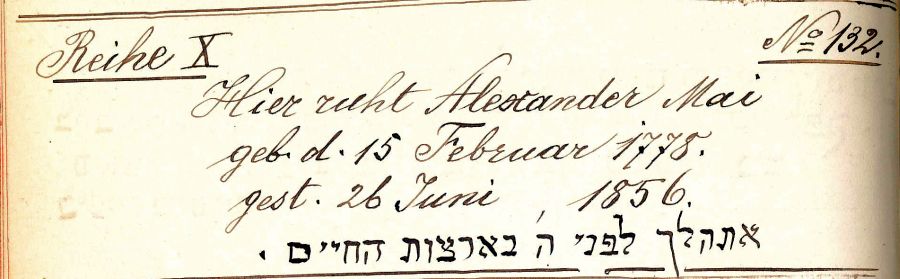 Reihe X
No 132.
Hier ruht Alexander Mai
geb. d. 15 Februar 1778.
gest. 26 Juni, 1856.
אתהלך לפני ה' בארצות החיים .